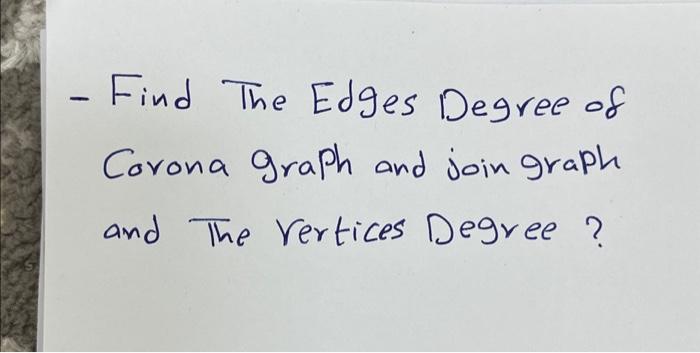 - Find The Edges Degree of
Corona graph and join graph
and The Vertices Degree ?